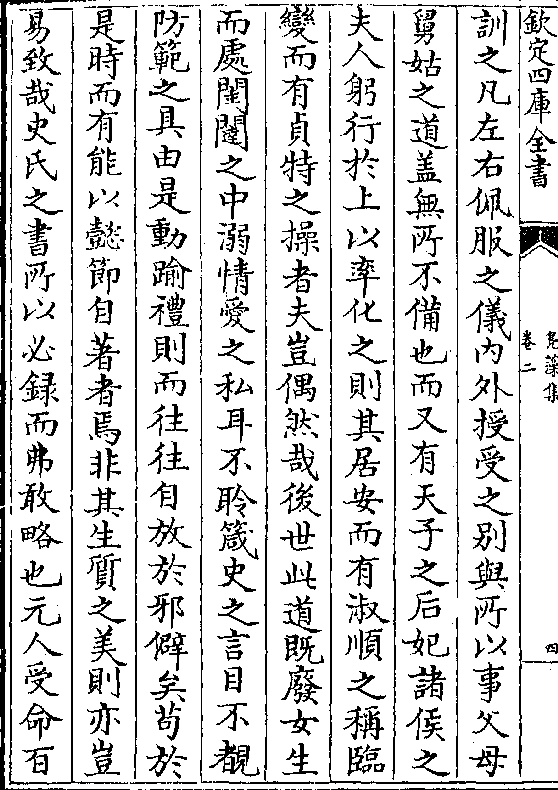 欽定四庫全書
鳧藻集
卷二
四
訓之凡左右佩服之儀内外授受之别與所以事父母
舅姑之道盖無所不備也而又有天子之后妃諸侯之
夫人躬行於上以率化之則其居安而有淑順之稱臨
變而有貞特之操者夫豈偶然哉後世此道既廢女生
而處閨闥之中溺情愛之私耳不聆箴史之言目不覩
防範之具由是動踰禮則而往往自放於邪僻矣苟於
是時而有能以懿節自著者焉非其生質之美則亦豈
易致哉史氏之書所以必録而弗敢略也元人受命百